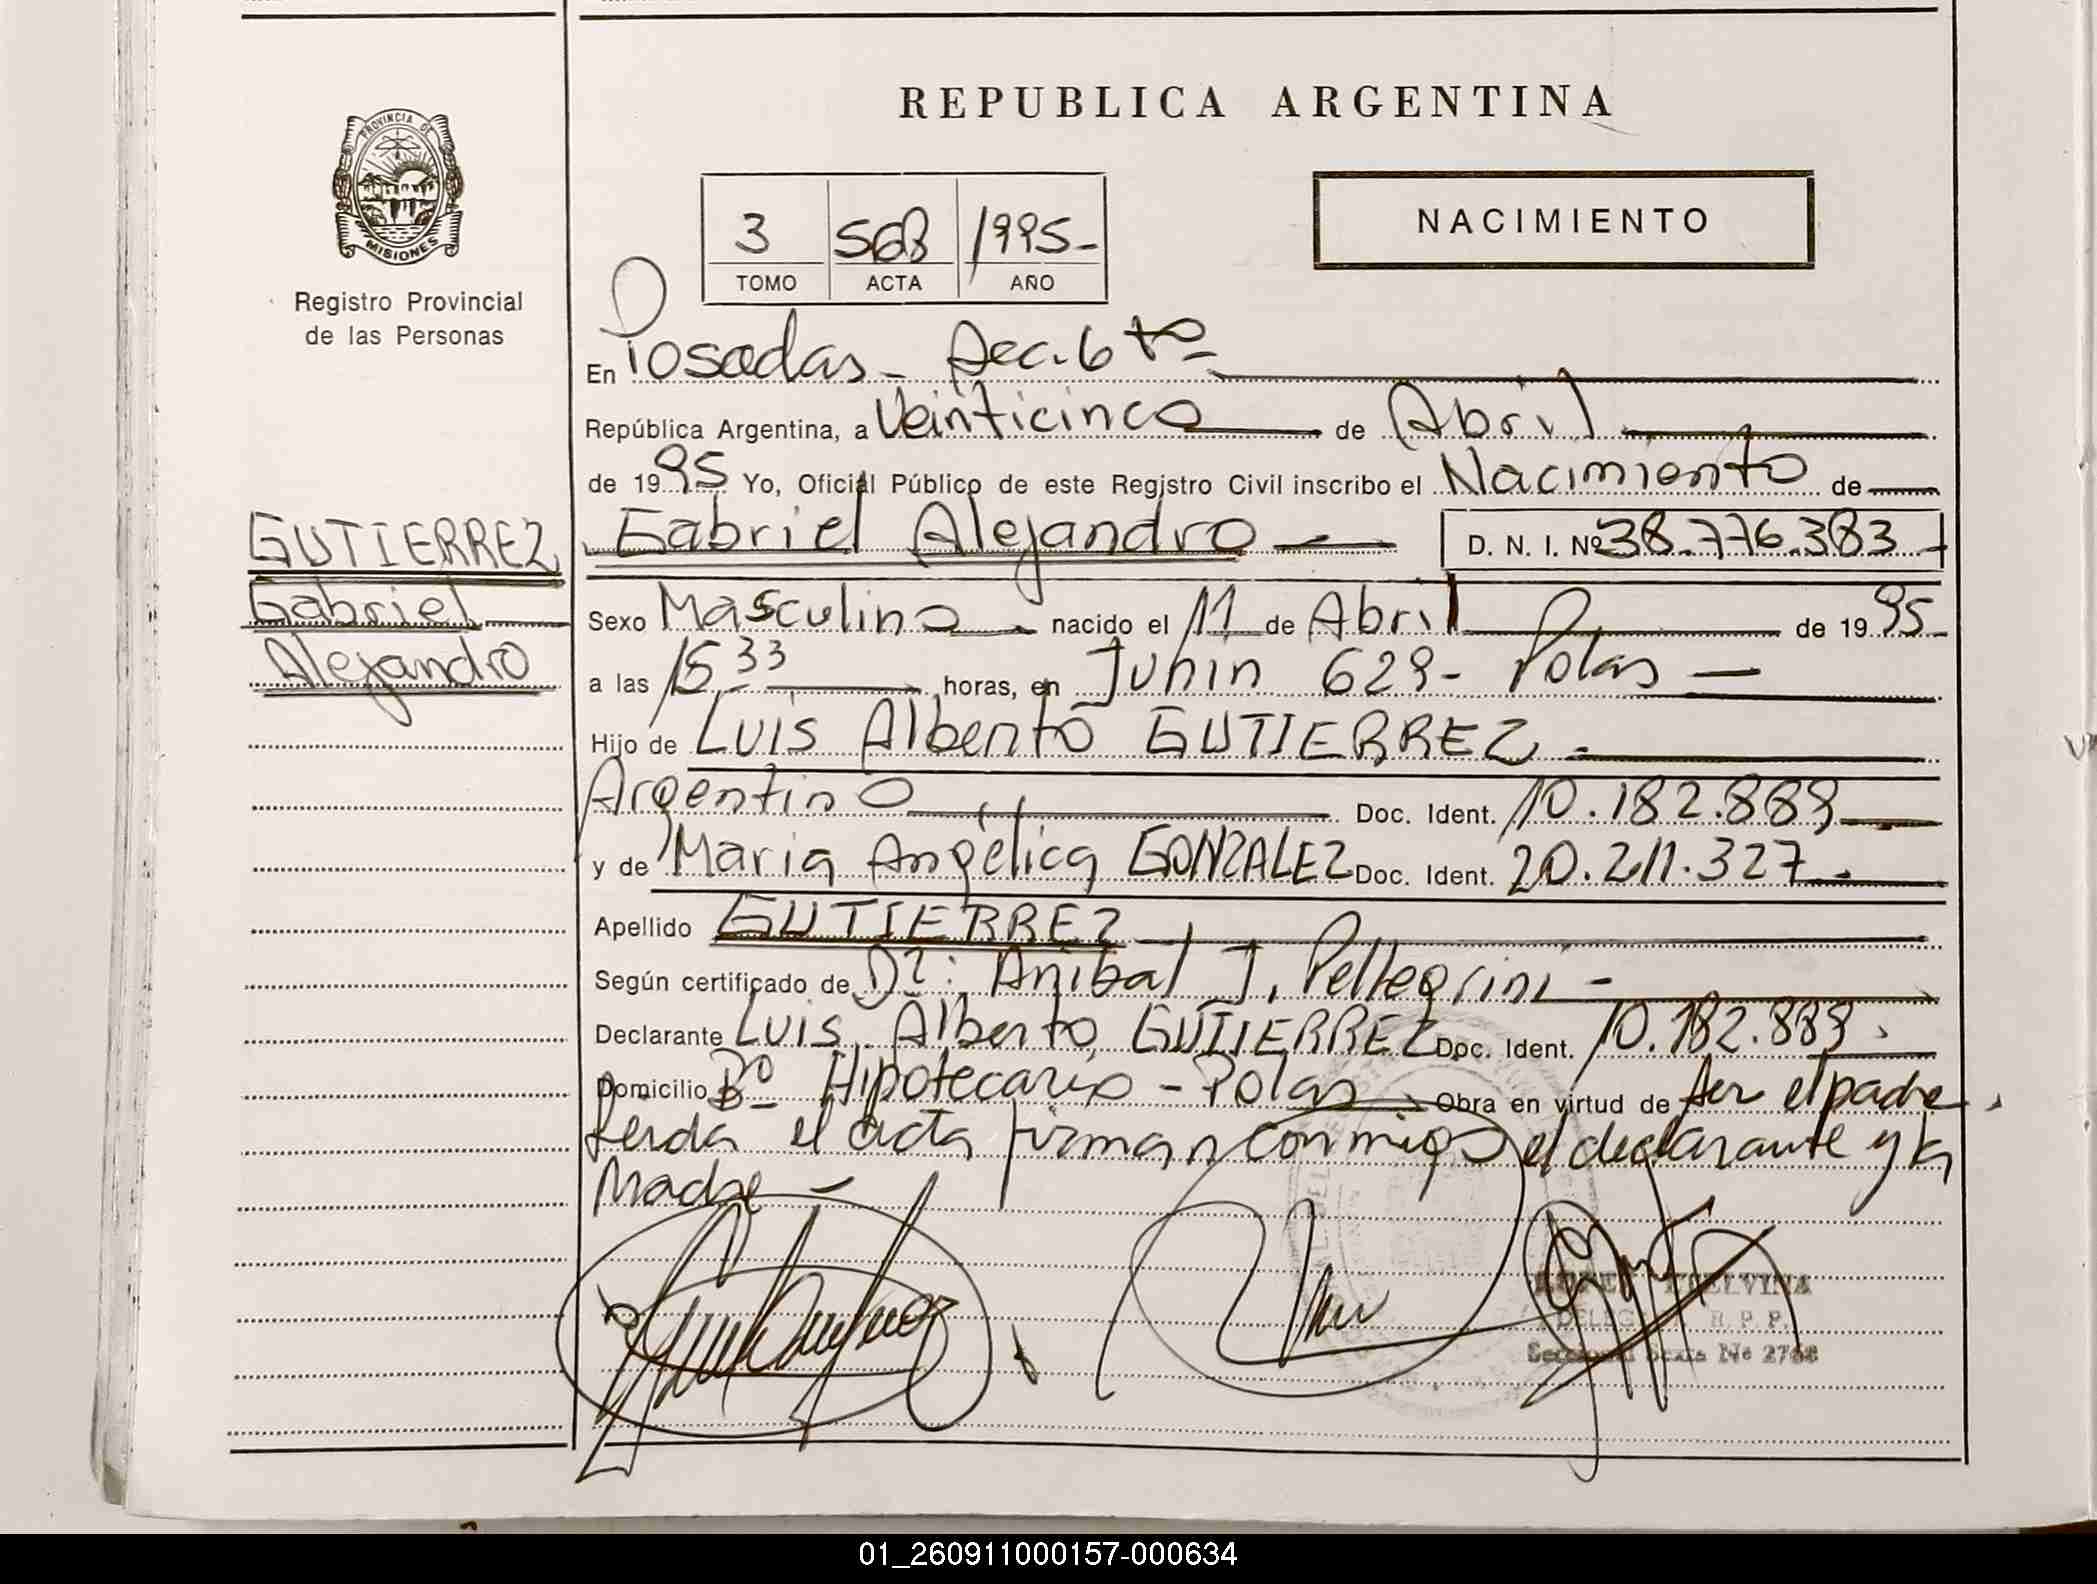 REPUBLICA ARGENTINA
PROVINCIA DE
MISIONES
Registro Provincial
de las Personas
3 568 1995-
TOMO ACTA AÑO
NACIMIENTO
En Posadas - Sec. 6 ta -
República Argentina, a Veinticinco de Abril
de 1995 Yo, Oficial Público de este Registro Civil inscribo el Nacimiento de
GUTIERREZ
Gabriel
Alejandro
Gabriel Alejandro D. N. I. Nº 38.776.383
Sexo Masculino nacido el 11 de Abril de 1995
a las 15 33 horas, en Junin 629 - Pdas -
Hijo de Luis Alberto GUTIERREZ -
Argentino Doc. Ident. 10.182.889
y de Maria Angélica GONZALEZ Doc. Ident. 20.211.327
Apellido GUTIERREZ
Según certificado de Dr: Anibal J. Pellegrini -
Declarante Luis Alberto GUTIERREZ Doc. Ident. 10.182.889
Domicilio Bº Hipotecario - Pdas Obra en virtud de ser el padre.
Leida el acta firman conmigo el declarante y la
Madre -
DELEG R. P. P.
Seccional Sexta Nº
01_260911000157-000634